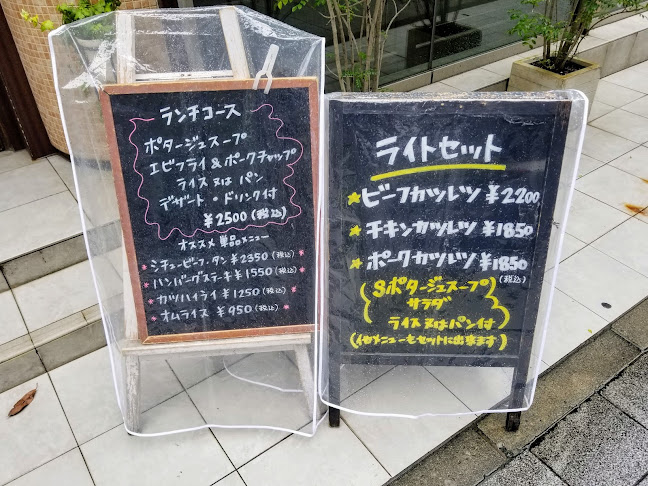 ランチコース
ポタージュスープ
エビフライ&ポークチャップ
ライス又はパン
デザート・ドリンク付
¥2500(税込)
オススメ単品メニュー
シチュービーフ・タン¥2350(税込)
ハンバーグステーキ¥1550(税込)
カツハイライ¥1250(税込)
オムライス¥950(税込)
ライトセット
ビーフカツレツ¥2200
チキンカツレツ¥1850
ポークカツレツ¥1850
(税込)
Sポタージュスープ
サラダ
ライス又はパン付
(他メニューもセットに出来ます)